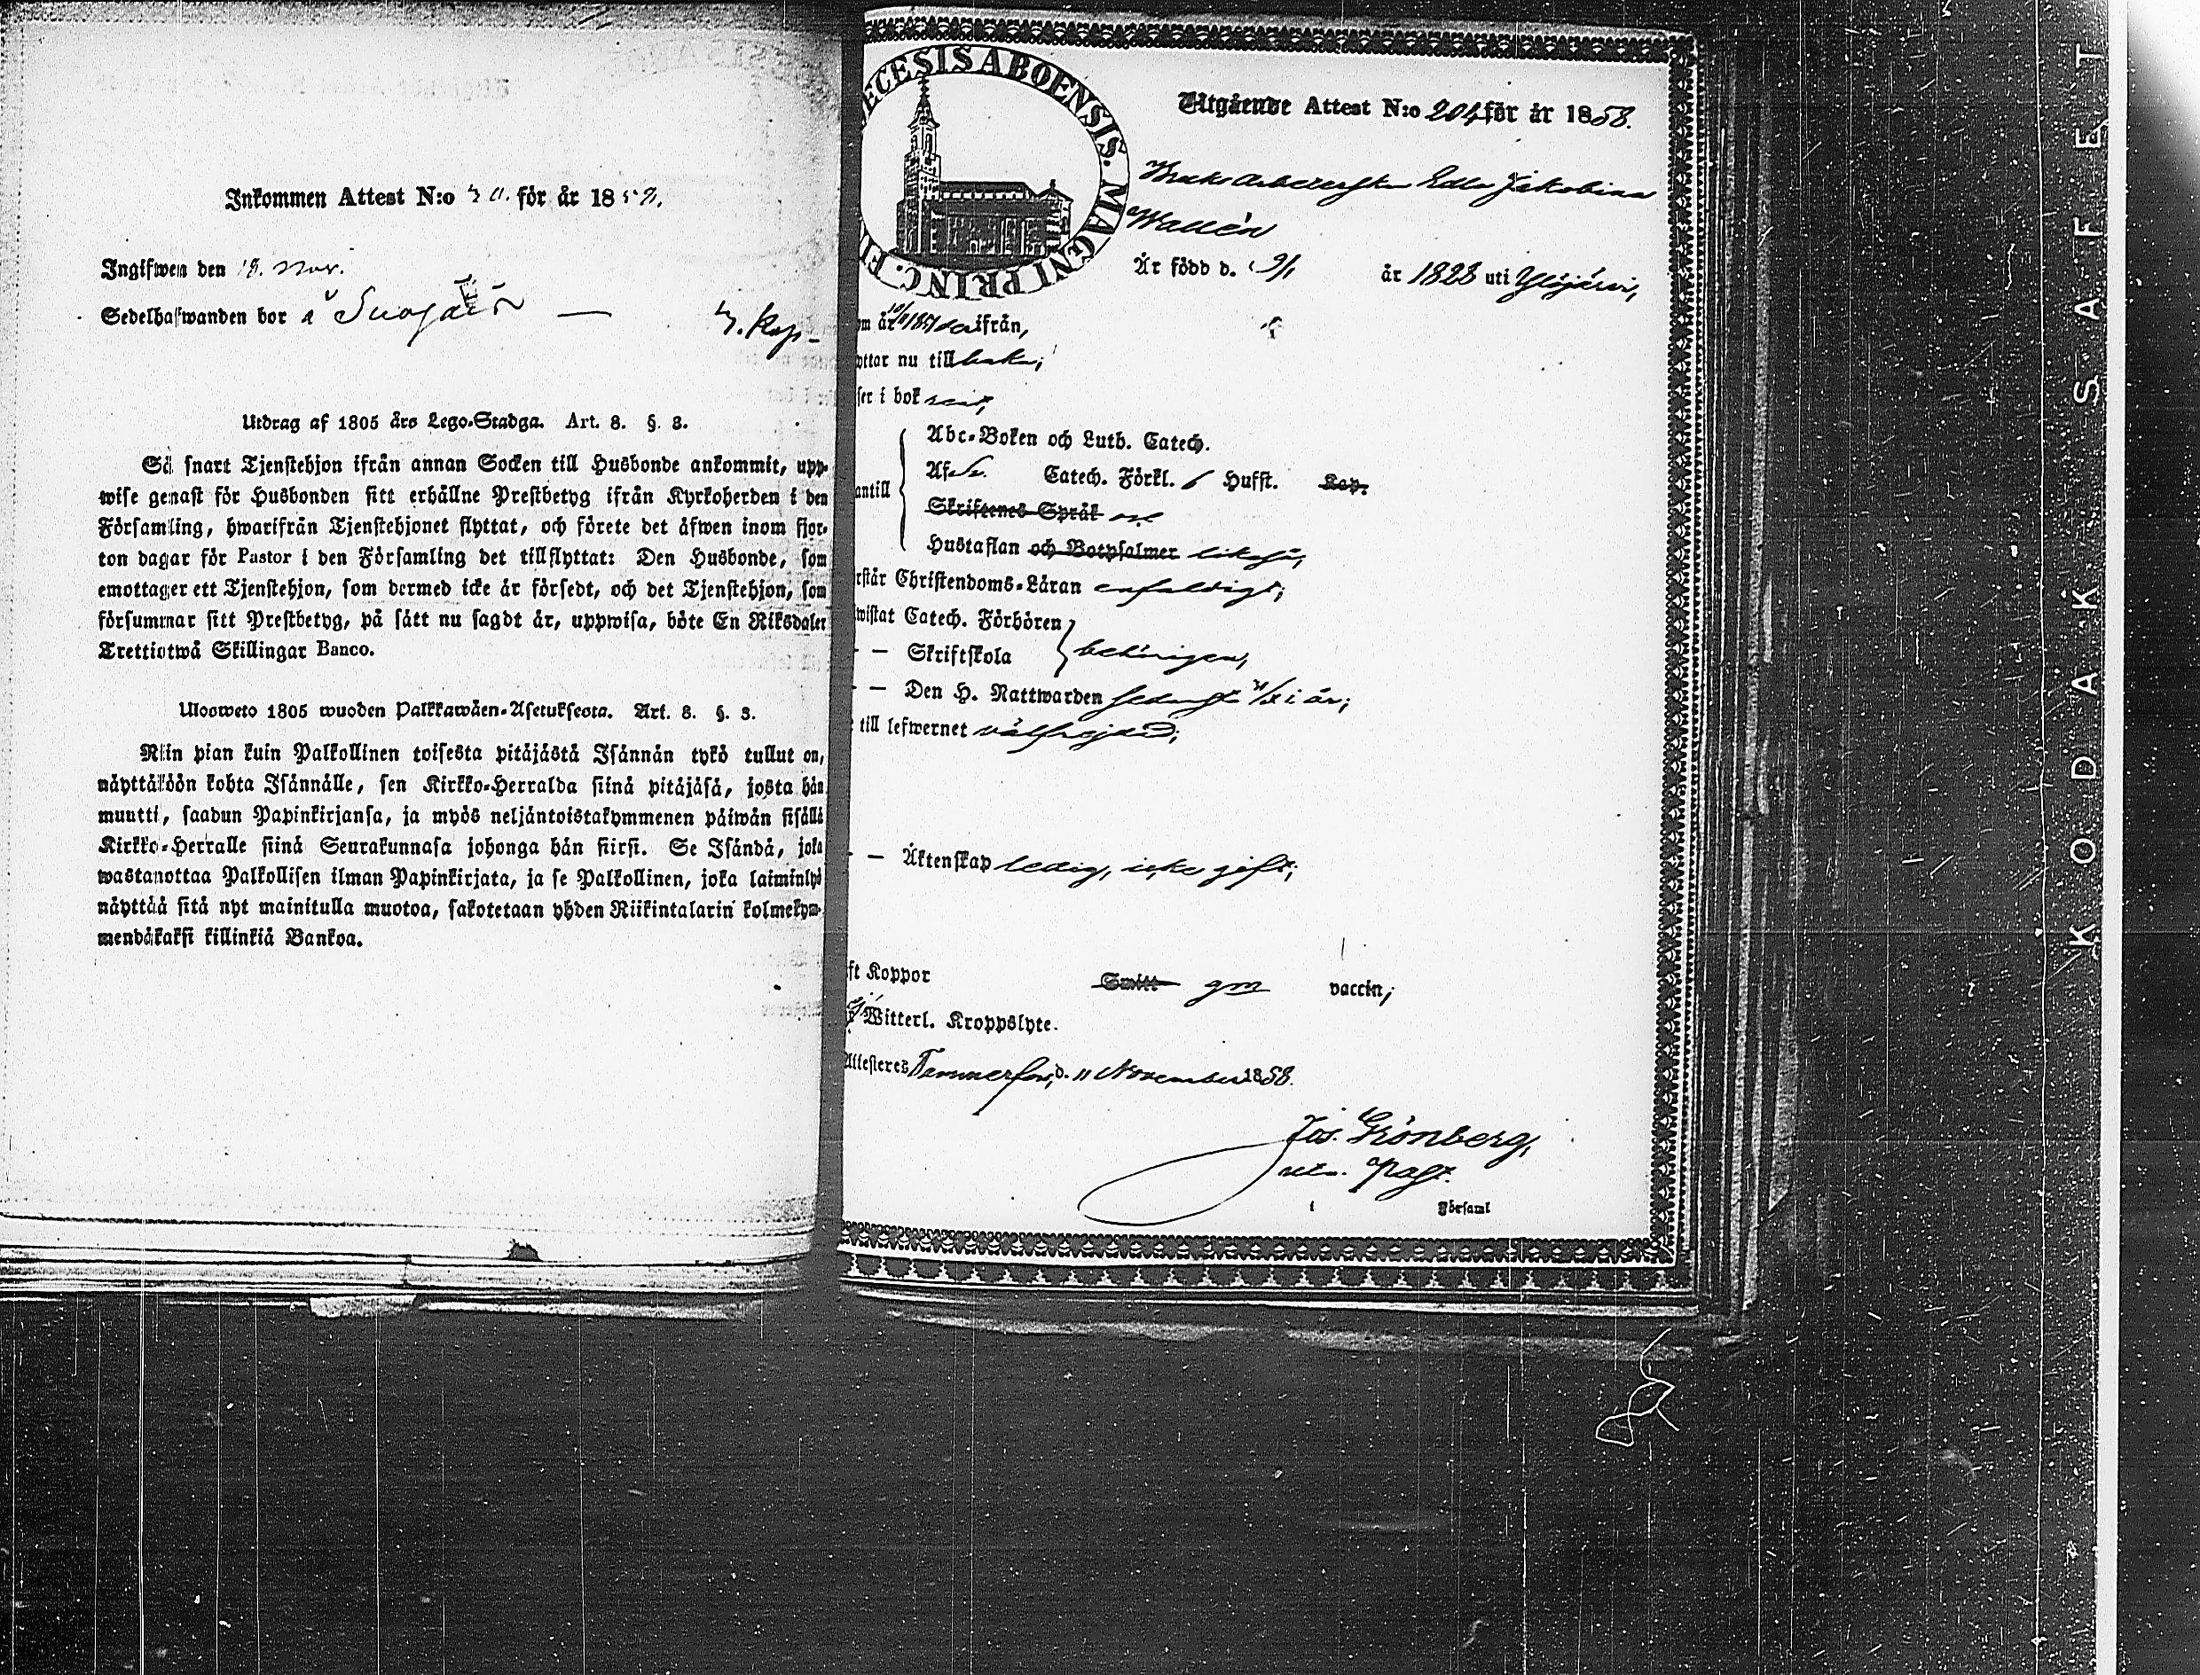 Inkommen Attest N:o för år 18
Ingifwen den 18. Nov.
Sedelhafwanden bor å
Utdrag af 1805 års Lego-Stadga. Art. 8. §. 3.
Så snart Tjenstehjon ifrån annan Socken till Husbonde ankommit, upp-
wise genast för Husbonden sitt erhållne Prestbetyg ifrån Kyrkoherden i den
Församling, hwarifrån Tjenstehjonet flyttat, och förete det äfwen inom fjor-
ton dagar för Pastor i den Församling det tillflyttat: Den Husbonde, som
emottager ett Tjenstehjon, som dermed icke är försedt, och det Tjenstehjon, som
försummar sitt Prestbetyg, på sätt nu sagdt är, uppwisa, böte En Riksdaler
Trettiotwå Skillingar Banco.
Ulosweto 1805 wuoden Palkkawäen-Asetuksesta. Art. 8. §. 3.
Niin pian kuin Palkollinen toisesta pitäjästä Isännän tykö tullut on,
näyttäköön kohta Isännälle, sen Kirkko-Herralda siinä pitäjäsä, josta hän
muutti, saadun Papinkirjansa, ja myös neljäntoistakymmenen päiwän sisällä
Kirkko-Herralle siinä Seurakunnasa johonga hän siirsi. Se Isändä, joka
wastanottaa Palkollisen ilman Papinkirjata, ja se Palkollinen, joka laiminlyö
näyttää sitä nyt mainitulla muotoa, sakotetaan yhden Riikintalarin kolmekym-
mendäkaksi killinkiä Bankoa.
ECESIS ABOENSIS. MAGNI PRINC. FI
Utgående Attest N:o 204 för år 1858.
Edla Jakobina
Wallén
Är född d. 9/1 år 1828 uti Ylöjärvi,
om år 1857 ifrån,
yttar nu tillbaka;
ser i bok rent,
antill
Abc-Boken och Luth. Catech.
Af Sv. Catech. Förkl. 6 Hufst. Kap.
Skriftenes Språk
Hustaflan och Botpsalmer likaså,
rstår Christendoms-Läran enfaldigt;
wistat Catech. Förhören
— Skriftskola behörigen,
— Den H. Nattwarden sednast i år;
till lefwernet välfrejdad;
— Äktenskap ledig, icke gift;
ft Koppor Smitt gm vaccin;
Witterl. Kroppslyte.
Attesteres Tammerfors, d. 11 November 1858.
Jos. Grönberg,
Past.
i Församl
KODAK SAFET